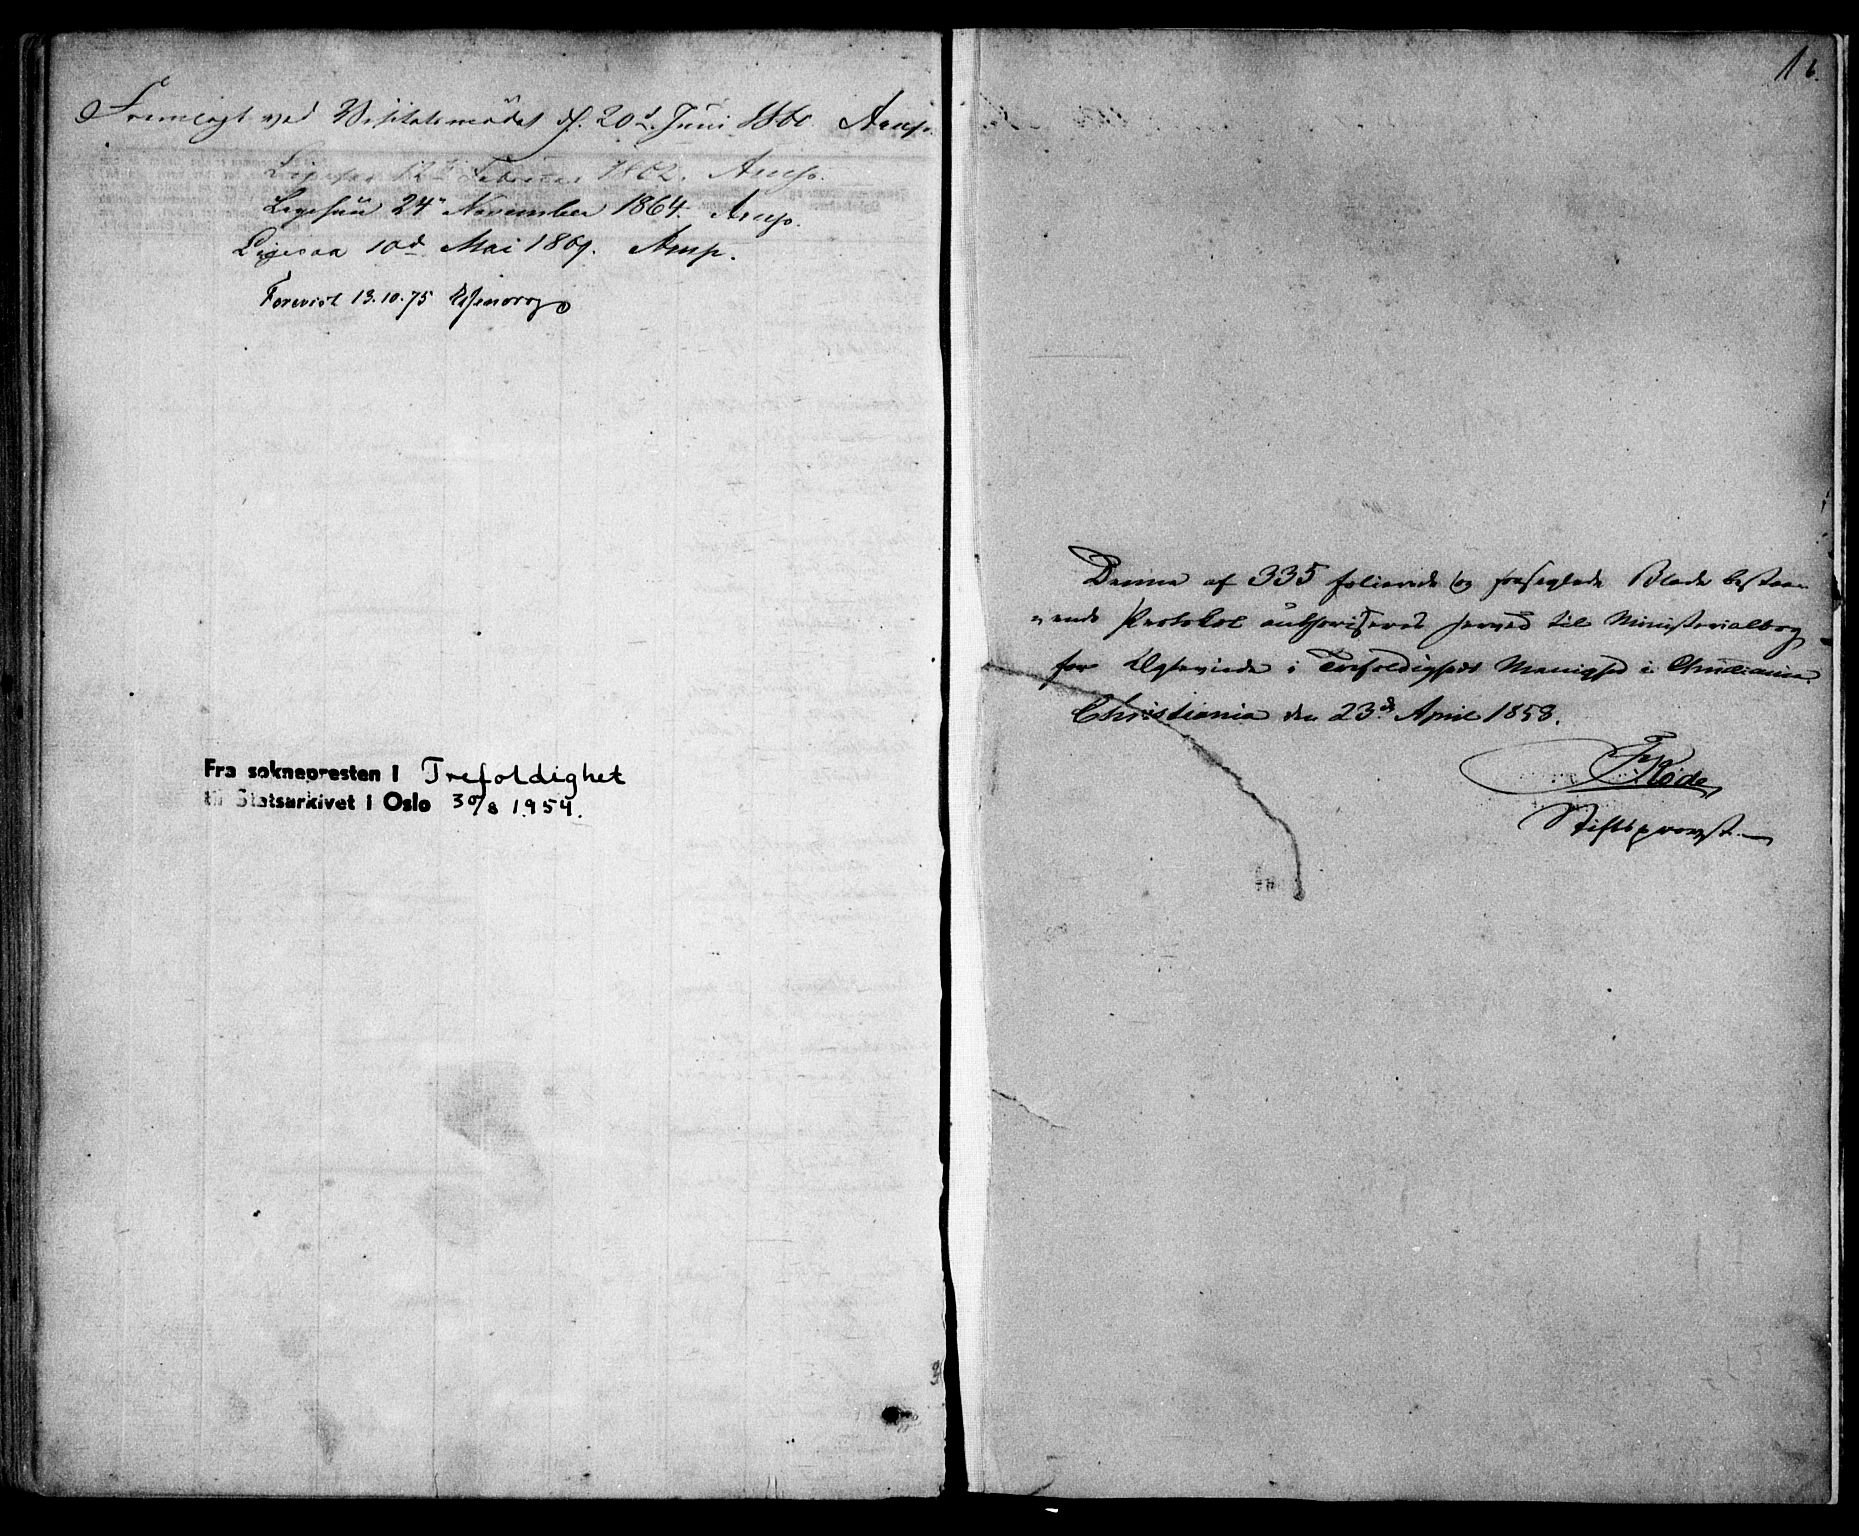 Fremlagt ved Visitatsmødet d. 20d Juni 1860 Arup.
Ligesaa 12d Februar 1862. Arup.
Ligesaa 24d November 1864. Arup.
Ligesaa 10d Mai 1869. Arup.
Forevist 13.10.75 Essendrop
Fra soknepresten i Trefoldighet
til Statsarkivet i Oslo 30/8 1954.
1
Denne af 335 folierede og forseglede Blade bestaa-
„ende Protokol authoriseres herved til Ministerialbog
for Ægteviede i Trefoldigheds Menighed i Christiania.
Christiania den 23de April 1858.
Fr Rode
Stiftsprovst